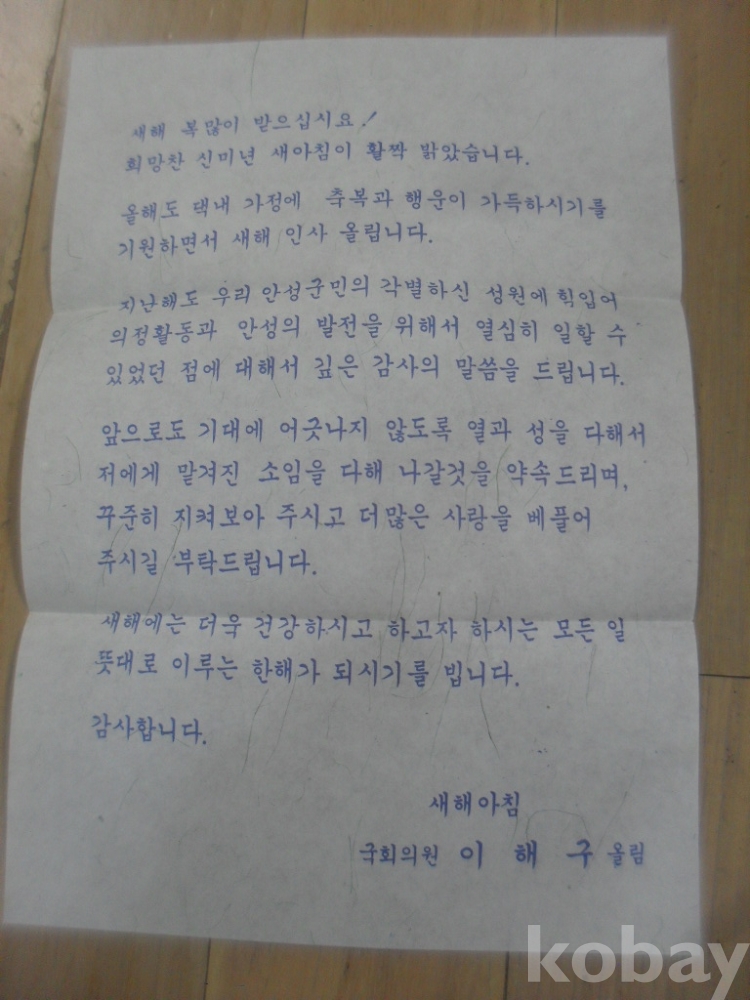 새해 복많이 받으십시요!
희망찬 신미년 새아침이 활짝 밝았습니다.
올해도 댁내 가정에 축복과 행운이 가득하시기를
기원하면서 새해 인사 올립니다.
지난해도 우리 안성군민의 각별하신 성원에 힘입어
의정활동과 안성의 발전을 위해서 열심히 일할 수
있었던 점에 대해서 깊은 감사의 말씀을 드립니다.
앞으로도 기대에 어긋나지 않도록 열과 성을 다해서
저에게 맡겨진 소임을 다해 나갈것을 약속드리며,
꾸준히 지켜보아 주시고 더많은 사랑을 베풀어
주시길 부탁드립니다.
새해에는 더욱 건강하시고 하고자 하시는 모든 일
뜻대로 이루는 한해가 되시기를 빕니다.
감사합니다.
새해아침
국회의원 이 해 구 올림
kobay